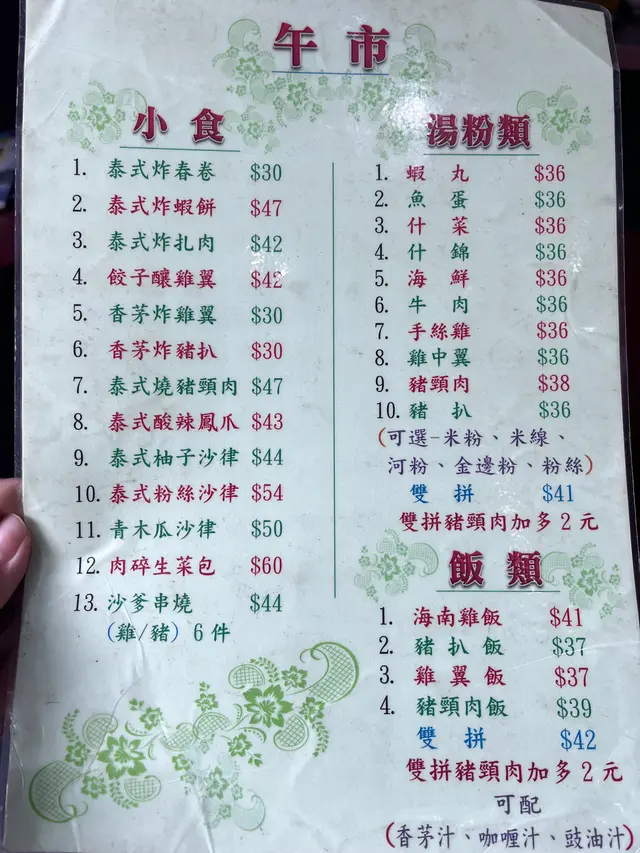 午市
小食
1. 泰式炸春卷 $30
2. 泰式炸蝦餅 $47
3. 泰式炸扎肉 $42
4. 餃子釀雞翼 $42
5. 香茅炸雞翼 $30
6. 香茅炸豬扒 $30
7. 泰式燒豬頸肉 $47
8. 泰式酸辣鳳爪 $43
9. 泰式柚子沙律 $44
10. 泰式粉絲沙律 $54
11. 青木瓜沙律 $50
12. 肉碎生菜包 $60
13. 沙爹串燒 $44
(雞/豬) 6件
湯粉類
1. 蝦丸 $36
2. 魚蛋 $36
3. 什菜 $36
4. 什錦 $36
5. 海鮮 $36
6. 牛肉 $36
7. 手絲雞 $36
8. 雞中翼 $36
9. 豬頸肉 $38
10. 豬扒 $36
(可選-米粉、米線、
河粉、金邊粉、粉絲)
雙拼 $41
雙拼豬頸肉加多2元
飯類
1. 海南雞飯 $41
2. 豬扒飯 $37
3. 雞翼飯 $37
4. 豬頸肉飯 $39
雙拼 $42
雙拼豬頸肉加多2元
可配
(香茅汁、咖喱汁、豉油汁)